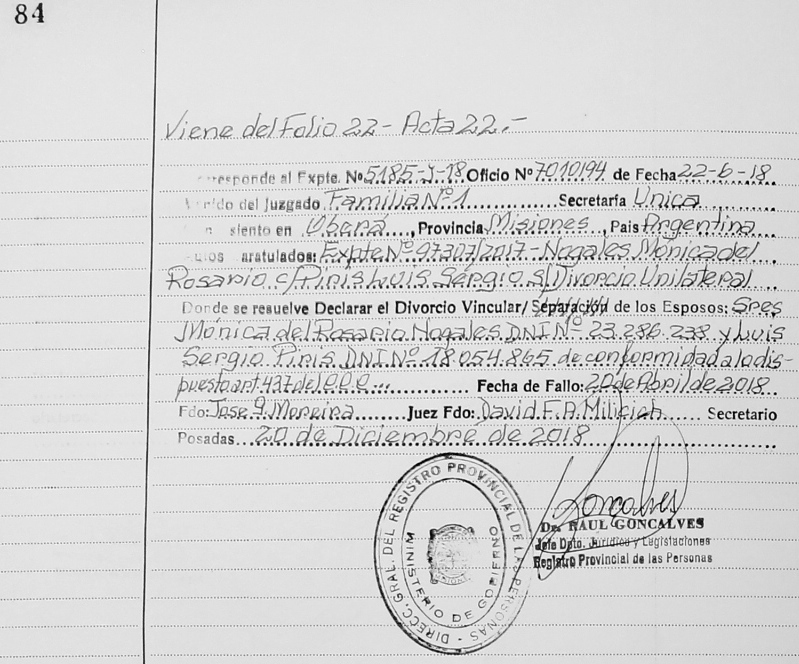 84
Viene del Folio 22 - Acta 22.-
responde al Expte. Nº 5185-J-18 Oficio Nº 7010194 de Fecha 22-6-18
rido del Juzgado Familia Nº 1 Secretaría Única
siento en Oberá, Provincia Misiones, Pais Argentina
aratulados: Expte Nº 97307/2017 - Nogales Mónica del
Rosario c/ Piris Luis Sergio s/ Divorcio Unilateral
Donde se resuelve Declarar el Divorcio Vincular/ Separación de los Esposos: Sres
Mónica del Rosario Nogales DNI Nº 23.286.238 y Luis
Sergio Piris DNI Nº 18.054.865 de conformidad a lo dis-
puesto art. 437 del Fecha de Fallo: 20 de Abril de 2018
Fdo: Jose G. Moreira Juez Fdo: David F.A. Milicich Secretario
Posadas 20 de Diciembre de 2018
DIRECC. GRAL. DEL REGISTRO PROVINCIAL DE LAS PERSONAS -
MINISTERIO DE GOBIERNO
Goncalves
Dr. RAUL GONCALVES
Jefe Dpto. Jurídico y Legistaciones
Registro Provincial de las Personas